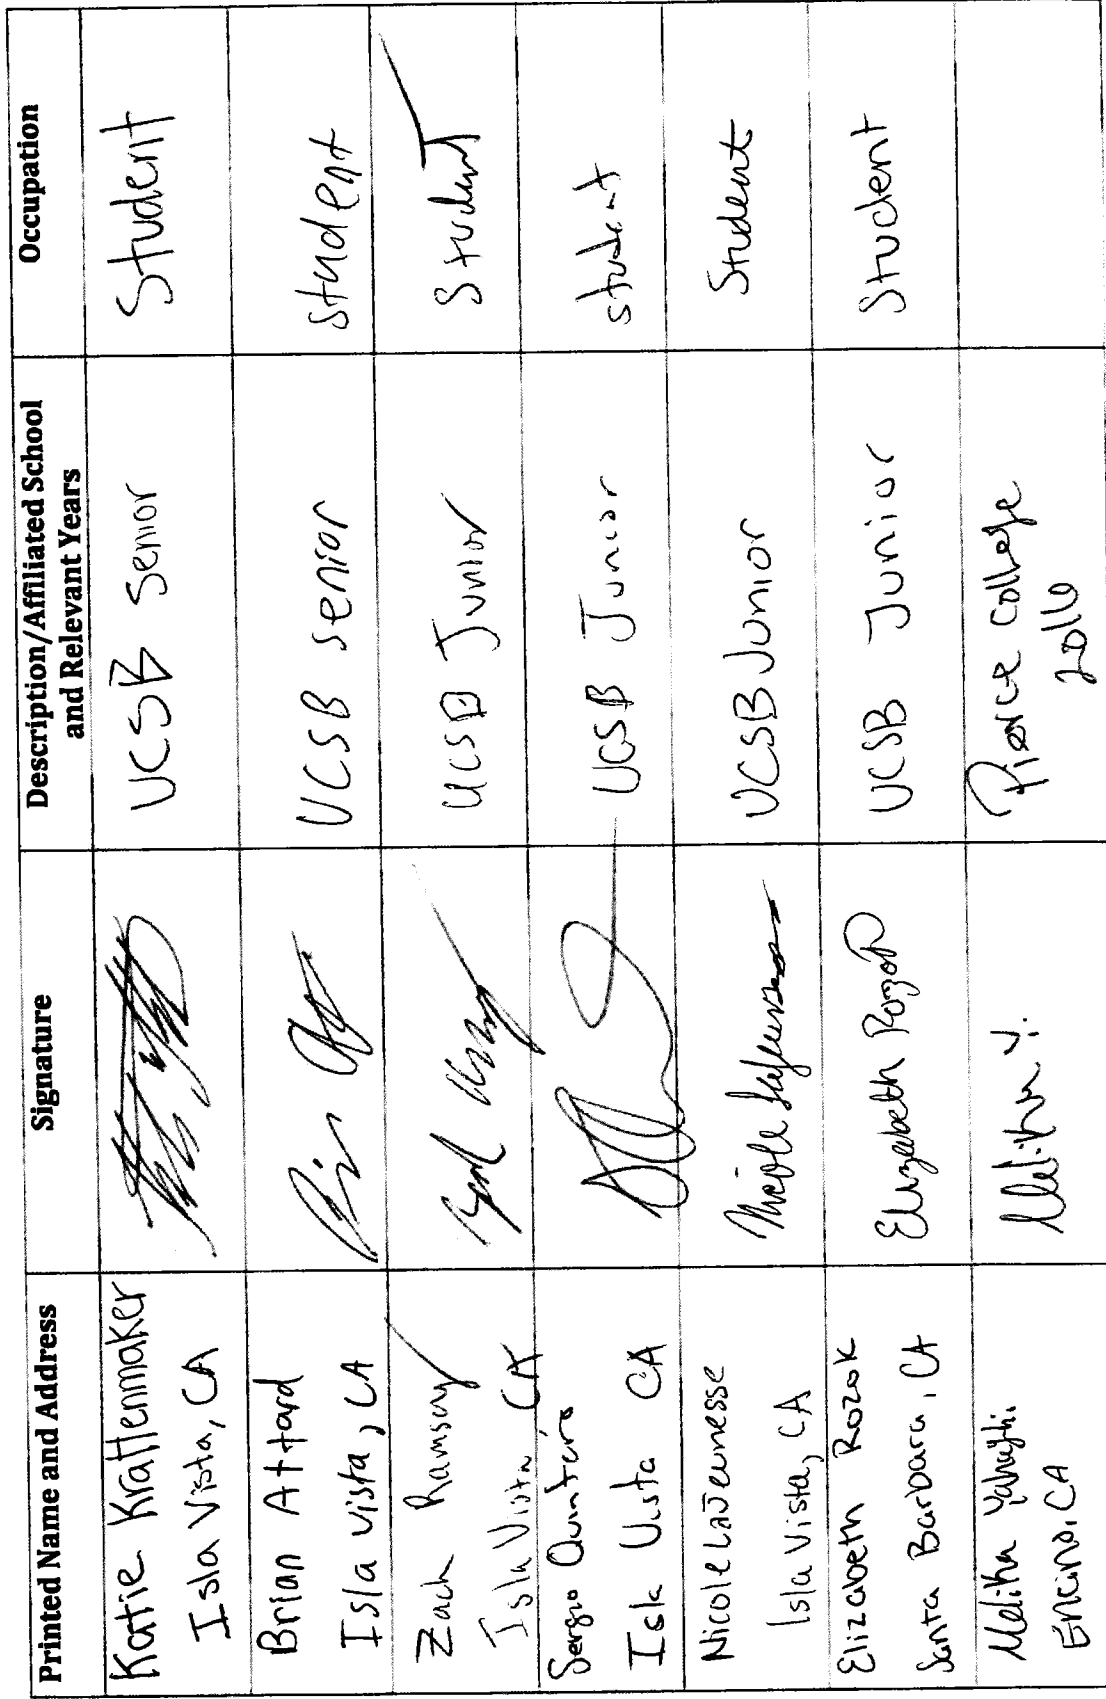 Printed Name and Address
Signature
Description/Affiliated School
and Relevant Years
Occupation
Katie Krattenmaker
Isla Vista, CA
UCSB Senior
Student
Brian Attard
Isla Vista, CA
UCSB Senior
Student
Zach Ramsay
Isla Vista CA
UCSB Junior
Student
Sergio Quintero
Isla Vista CA
UCSB Junior
student
Nicole LaJeunesse
Isla Vista, CA
Nicole LaJeunesse
UCSB Junior
Student
Elizabeth Rozok
Santa Barbara, CA
Elizabeth Rozok
UCSB Junior
Student
Melika
Encino, CA
Melika Y.
Pierce College
2016